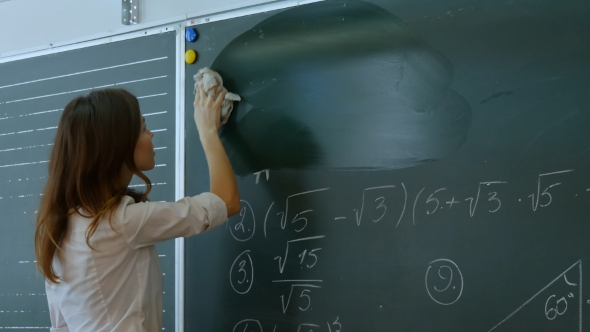 2. (√5 - √3)(5 + √3 · √5
3. √15/√5
9.
60°